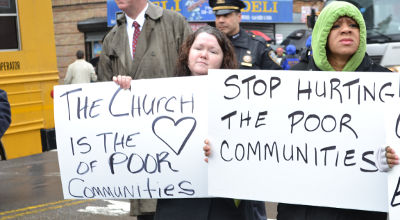 DELI
DELI
OPERATOR
THE CHURCH
IS THE ♡
OF POOR
COMMUNITIES
STOP HURTING
THE POOR
COMMUNITIES